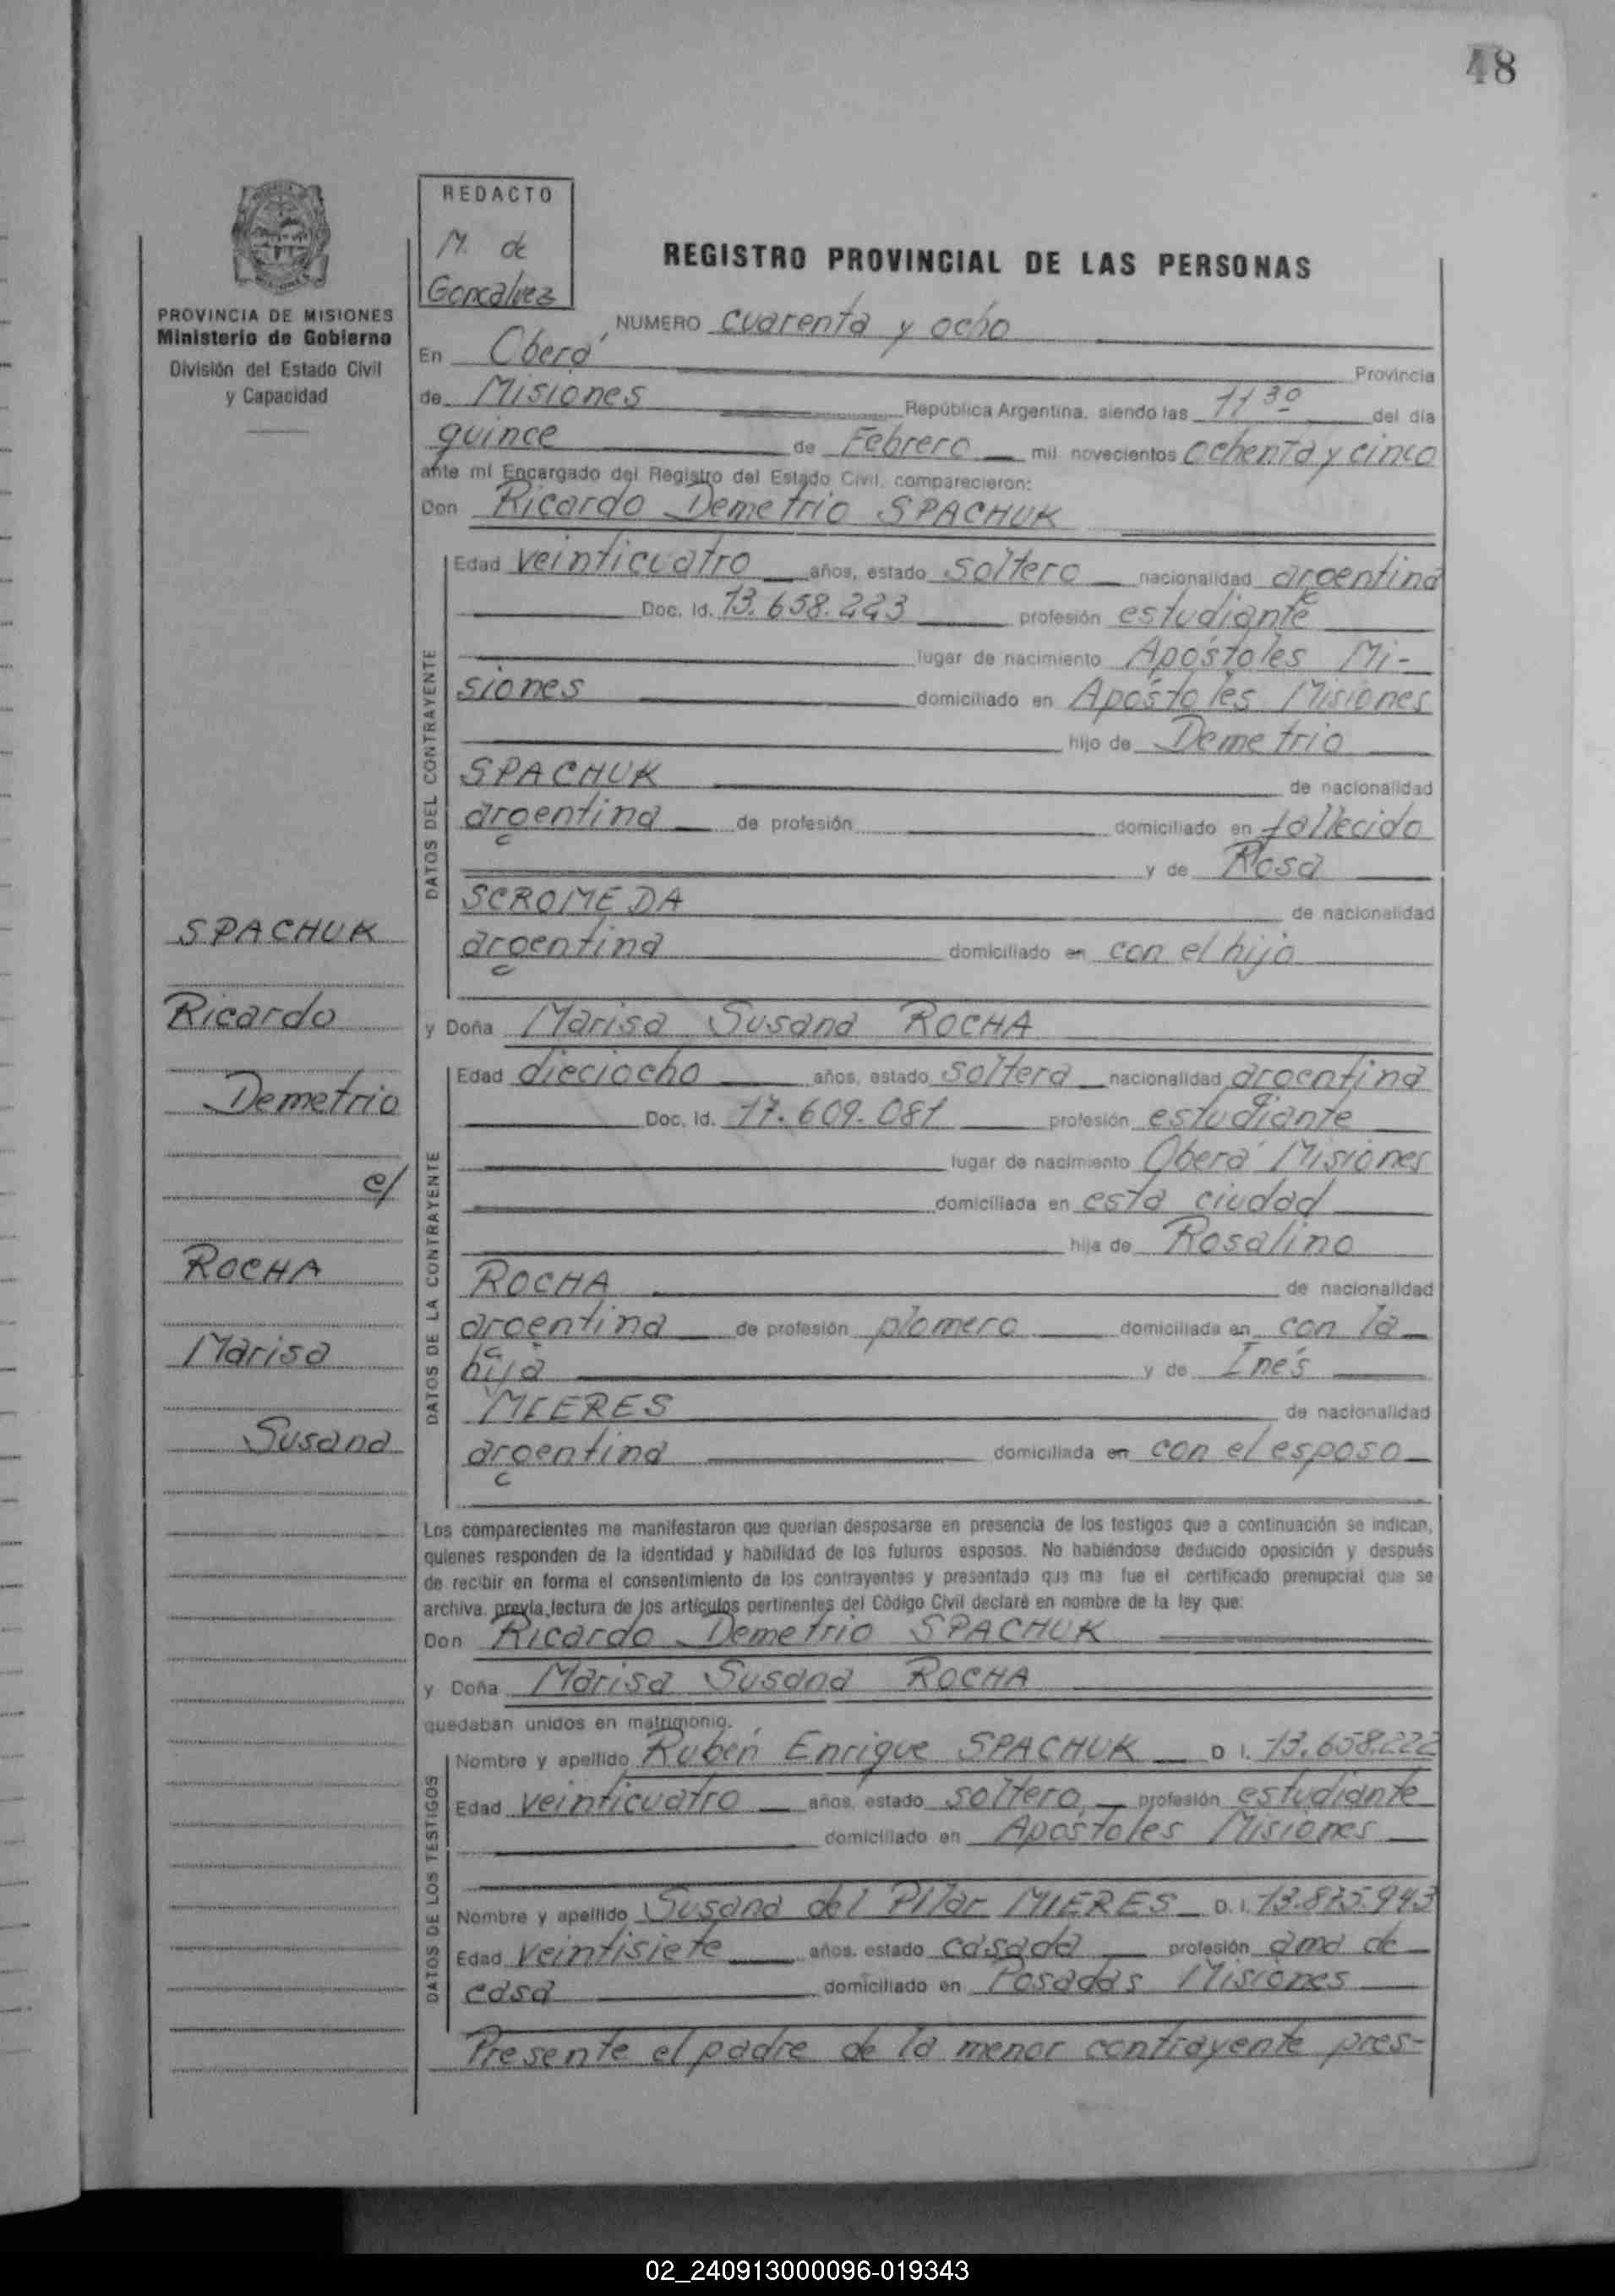 48
REDACTO
M. de
Goncalvez
REGISTRO PROVINCIAL DE LAS PERSONAS
PROVINCIA DE MISIONES
Ministerio de Gobierno
División del Estado Civil
y Capacidad
NUMERO cuarenta y ocho
En Oberá Provincia
de Misiones República Argentina, siendo las 11 30 del día
quince de Febrero mil novecientos ochenta y cinco
ante mí Encargado del Registro del Estado Civil, comparecieron:
Don Ricardo Demetrio SPACHUK
DATOS DEL CONTRAYENTE
Edad veinticuatro años, estado soltero nacionalidad argentina
Doc. Id. 13.658.223 profesión estudiante
lugar de nacimiento Apóstoles Mi-
siones domiciliado en Apóstoles Misiones
hijo de Demetrio
SPACHUK de nacionalidad
argentina de profesión domiciliado en fallecido
y de Rosa
SCROMEDA de nacionalidad
argentina domiciliado en con el hijo
SPACHUK
Ricardo
Demetrio
c/
ROCHA
Marisa
Susana
y Doña Marisa Susana ROCHA
DATOS DE LA CONTRAYENTE
Edad dieciocho años, estado soltera nacionalidad argentina
Doc. Id. 17.609.081 profesión estudiante
lugar de nacimiento Oberá Misiones
domiciliada en esta ciudad
hija de Rosalino
ROCHA de nacionalidad
argentina de profesión plomero domiciliada en con la
hija y de Inés
MIERES de nacionalidad
argentina domiciliada en con el esposo
Los comparecientes me manifestaron que querían desposarse en presencia de los testigos que a continuación se indican,
quienes responden de la identidad y habilidad de los futuros esposos. No habiéndose deducido oposición y después
de recibir en forma el consentimiento de los contrayentes y presentado que me fue el certificado prenupcial que se
archiva, previa lectura de los artículos pertinentes del Código Civil declaré en nombre de la ley que:
Don Ricardo Demetrio SPACHUK
y Doña Marisa Susana ROCHA
quedaban unidos en matrimonio.
DATOS DE LOS TESTIGOS
Nombre y apellido Rubén Enrique SPACHUK D I. 13.658.222
Edad veinticuatro años, estado soltero profesión estudiante
domiciliado en Apóstoles Misiones
Nombre y apellido Susana del Pilar MIERES D. I. 13.875.943
Edad veintisiete años, estado casada profesión ama de
casa domiciliado en Posadas Misiones
Presente el padre de la menor contrayente pres-
02_240913000096-019343